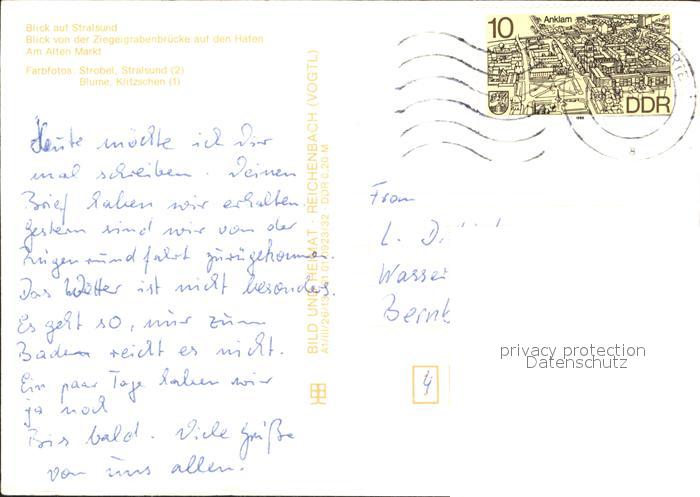 Blick auf Stralsund
Blick von der Ziegelgrabenbrücke auf den Hafen
Am Alten Markt
Farbfotos: Strobel, Stralsund (2)
Blume, Klitzschen (1)
10
Anklam
DDR
Heute möchte ich Dir
mal schreiben. Deinen
Brief haben wir erhalten.
Gestern sind wir von der
Rügenrundfahrt zurückgekommen.
Das Wetter ist nicht besonders.
Es geht so, nur zum
Baden reicht es nicht.
Ein paar Tage haben wir
ja noch
Bis bald. Viele Grüße
von uns allen.
BILD UND HEIMAT · REICHENBACH (VOGTL)
DDR 0,20 M
Frau
L. D.
Wasser
Bernb
privacy protection
Datenschutz